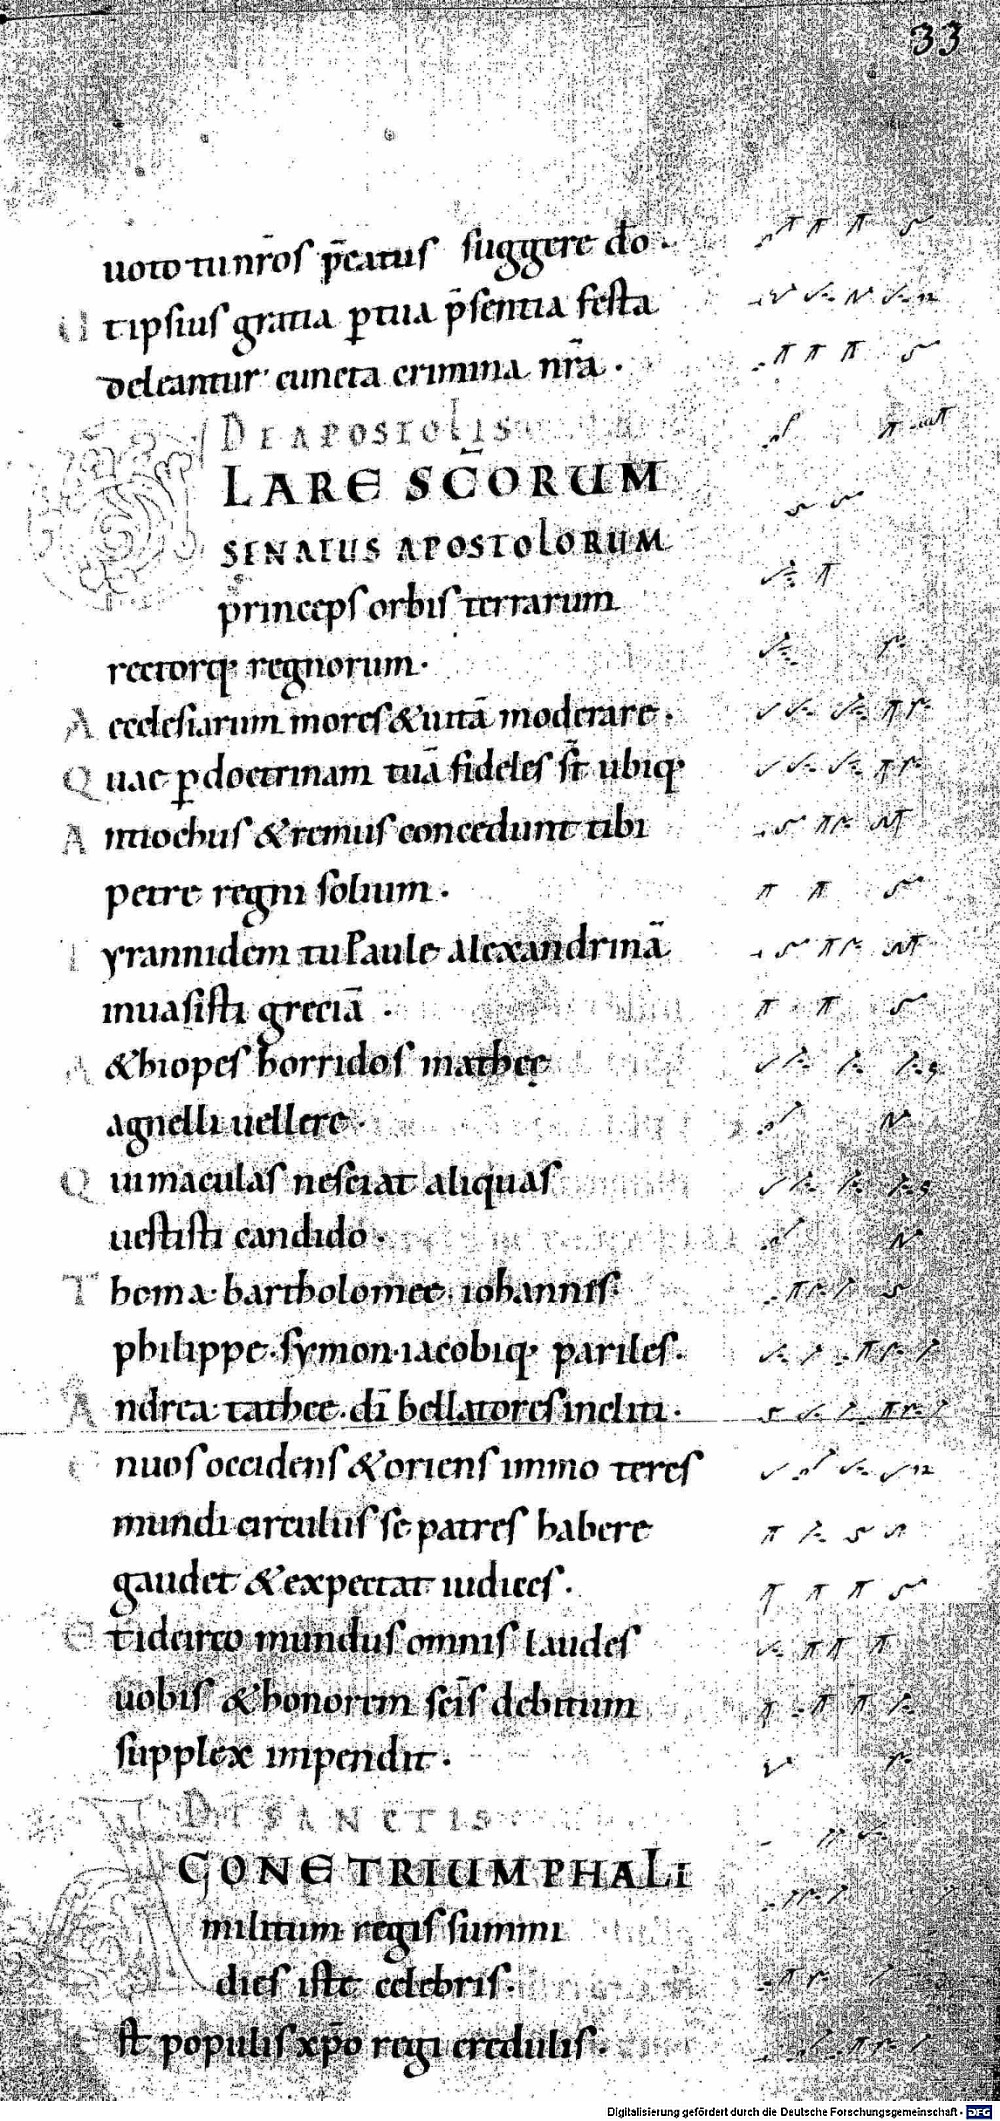 33
uoto tu nr̄os p̄catus suggere dō.
Ut ipsius gratia ꝑ tua p̄sentia festa
deleantur cuncta crimina nr̄a.
DE APOSTOLIS
CLARE SC̄ORUM
SENATUS APOSTOLORUM
princeps orbis terrarum
rectorq; regnorum.
Aecclesiarum mores & uitā moderare.
Quae ꝑ doctrinam tuā fideles st̄ ubiq;
Antiochus & remus concedunt tibi
petre regni solium.
Tyrannidem tu Paule alexandrinā
inuasisti greciā.
A&hiopes horridos mathee
agnelli uellere.
Qui maculas nesciat aliquas
uestisti candido.
Thoma. bartholomee. iohannes.
philippe. symon. iacobiq; pariles.
Andrea. tathee. dī bellatores incliti.
En uos occidens & oriens immo teres
mundi circulus se patres habere
gaudet & expectat iudices.
Et idcirco mundus omnis laudes
uobis & honorem sc̄is debitum
supplex impendit.
DE SANCTIS
AGONE TRIUMPHALI
militum regis summi
dies iste celebris.
Est populis xp̄o regi credulis.
Digitalisierung gefördert durch die Deutsche Forschungsgemeinschaft - DFG